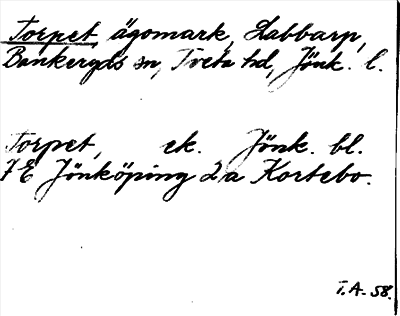 Torpet, ägomark, Labbarp,
Bankeryds sn, Tveta hd, Jönk. l.
Torpet, ek. Jönk. bl.
7E Jönköping 2a Kortebo.
T.A. 58.